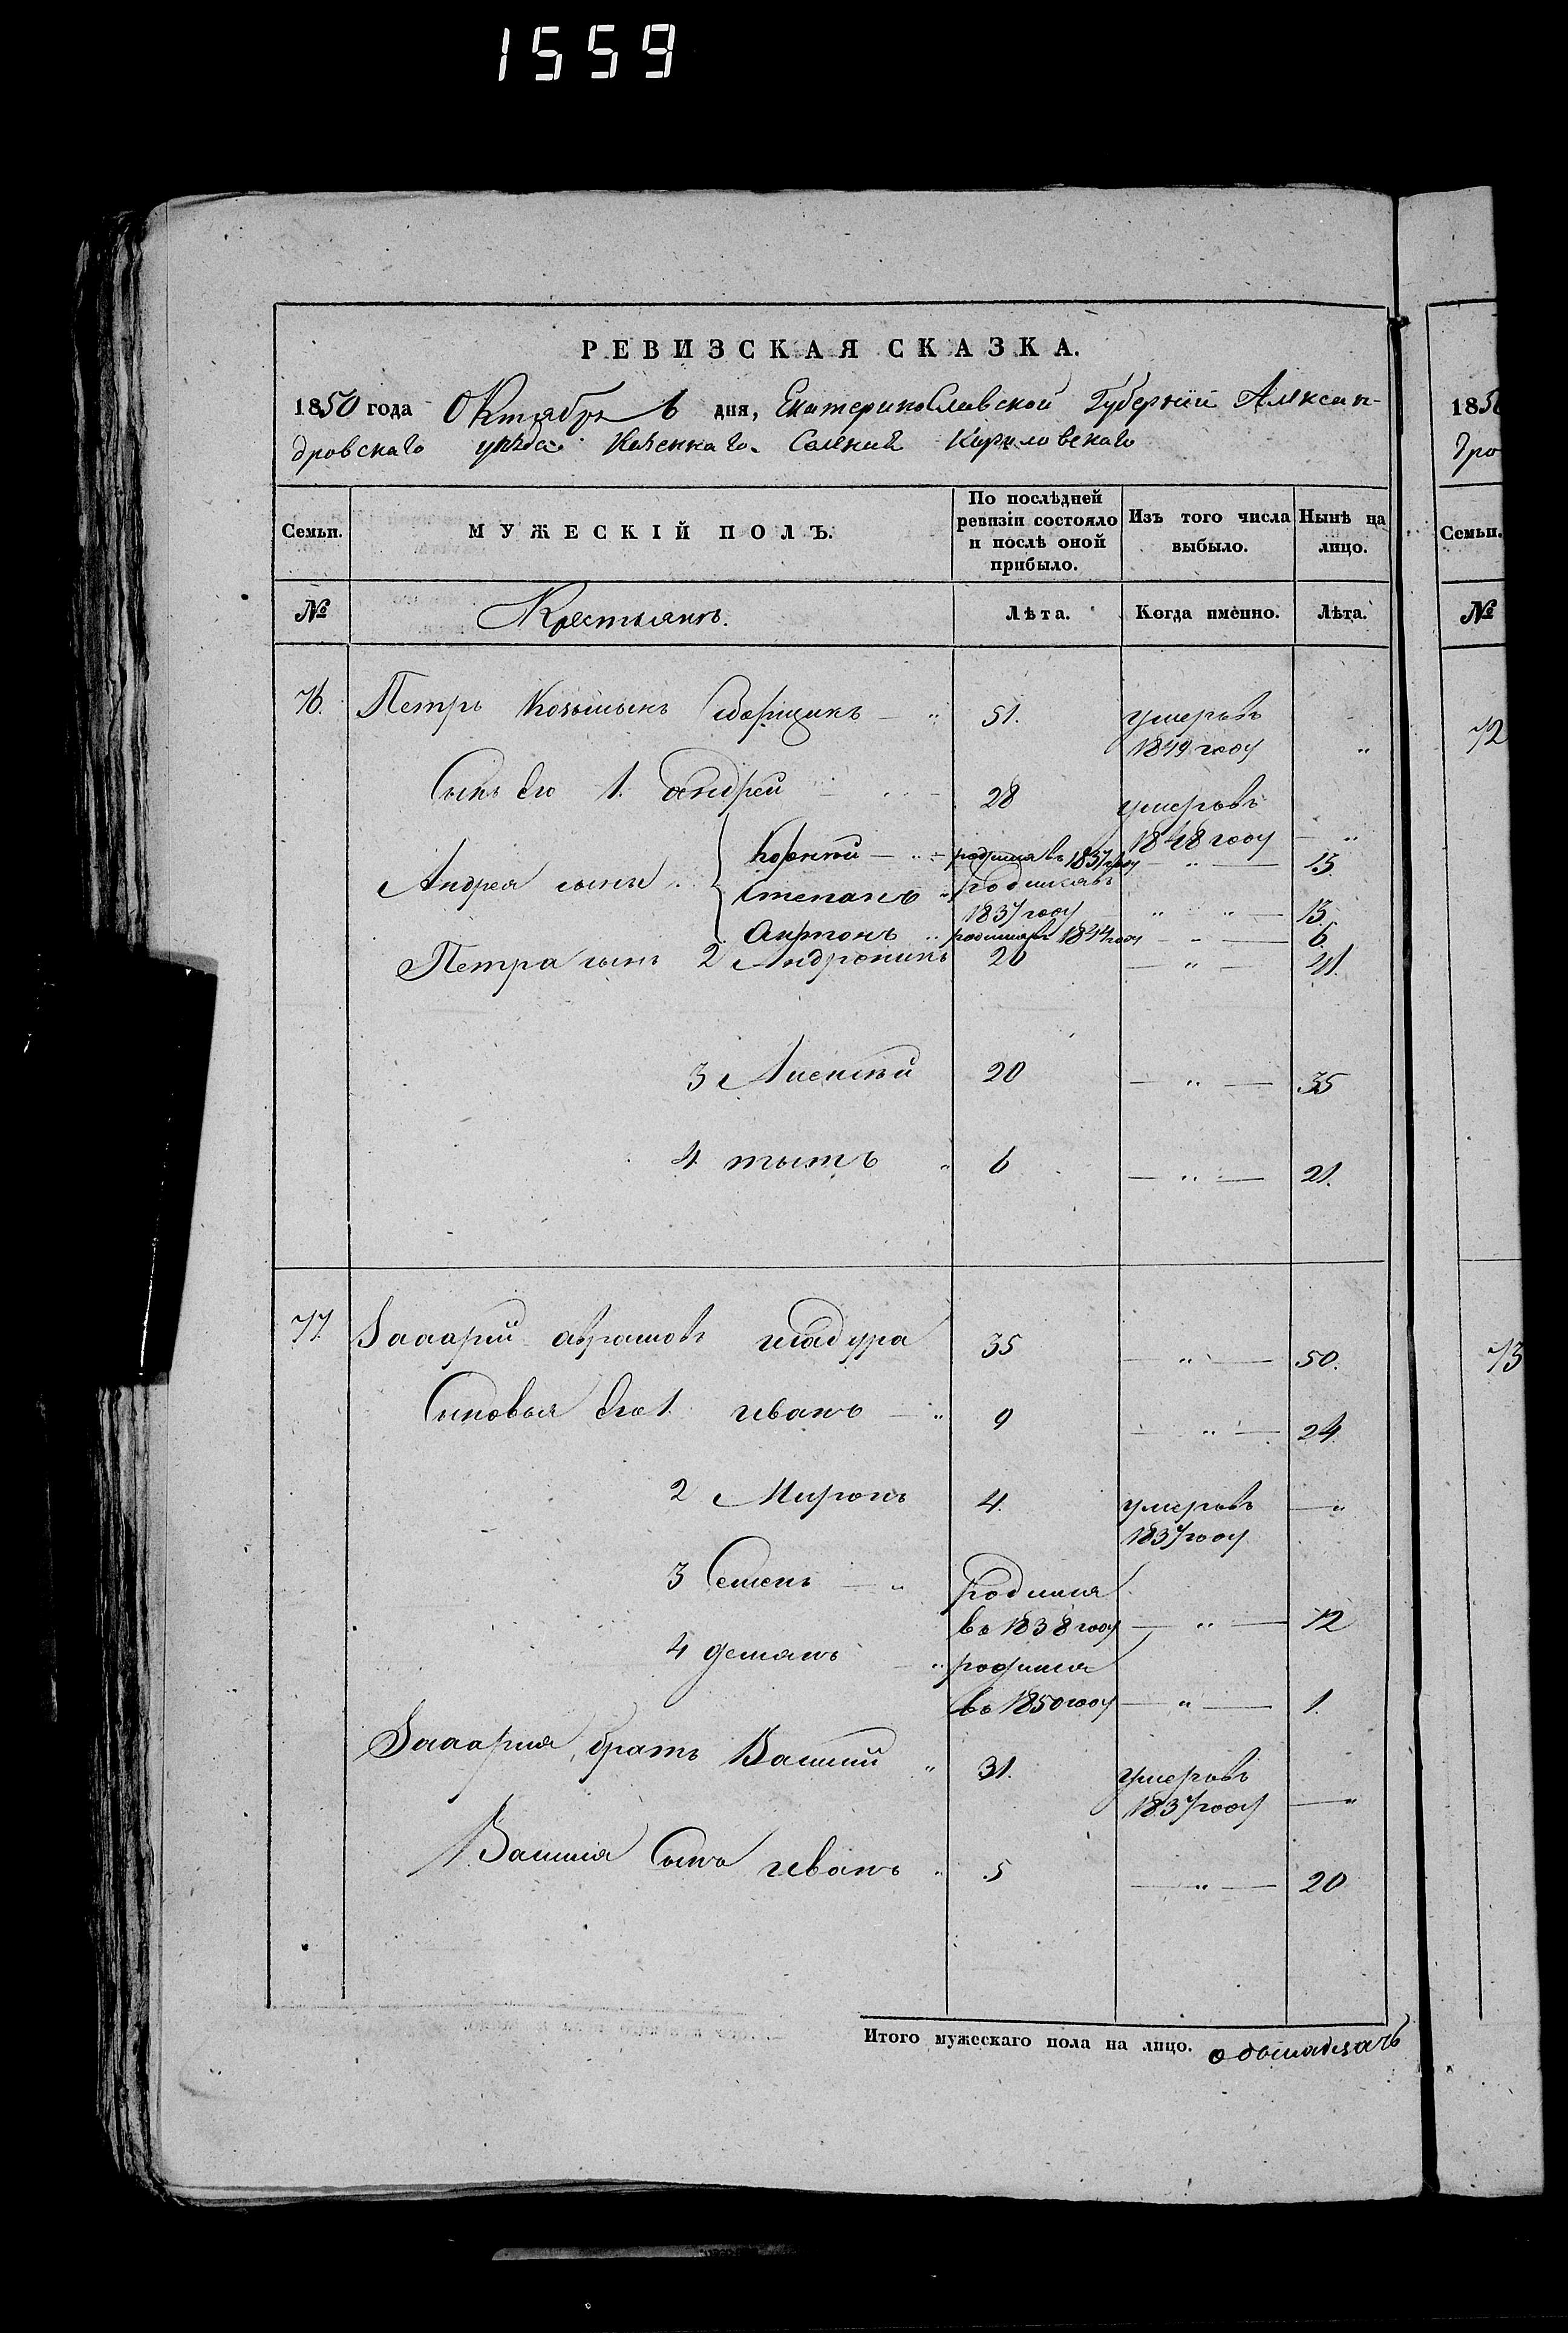 1559
РЕВИЗСКАЯ СКАЗКА.
1850 года Октября 6 дня, Екатеринославской Губерніи Алексан-
дровскаго уѣзда Казеннаго Селенія Кириловскаго
Семьи. МУЖЕСКІЙ ПОЛЪ. По послѣдней ревизіи состояло и послѣ оной прибыло. Изъ того числа выбыло. Нынѣ на лицо.
№ Крестьянъ. Лѣта. Когда именно. Лѣта.
76. Петръ Козьминъ Сборщикъ — " 51. умеръ въ
1849 году "
Сынъ его 1. андрей 28 умеръ въ
1848 году — "
Андрея сыны. — " — родился въ 1837 году — " — 15.
Степанъ " родился въ
1837 году " " — 13.
Антонъ " родился 1844 году — " — 6.
Петра сынъ 2 Андроникъ 20 — " — 41.
3 20 — " — 35
4 титъ " 6 — " — 21.
77. Захарій аврамовъ шадура 35 — " — 50.
Сыновья его 1. иванъ — " 9 — " — 24.
2 Миронъ 4. умеръ въ — "
1837 году
3 Семенъ — " родился
въ 1838 году — " — 12
4 демянъ — " родился
въ 1850 году — " — 1.
Захарія братъ Василий " 31. умеръ въ
1837 году — "
Василия Сынъ иванъ " 5 — " — 20
Итого мужескаго пола на лицо.
185
дро
Семьи.
№
72
73